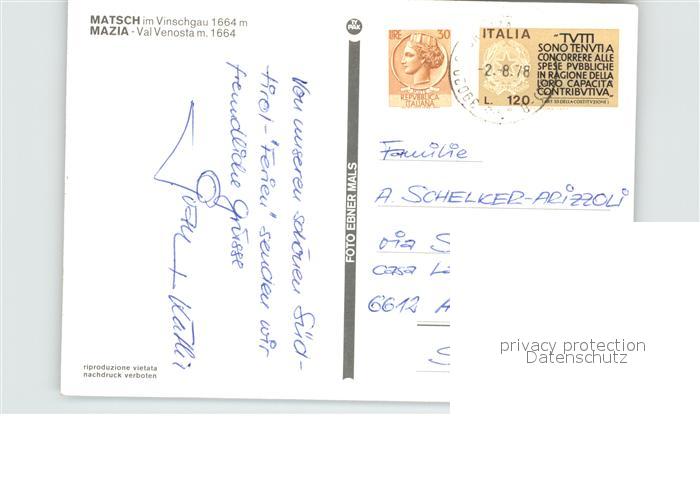 MATSCH im Vinschgau 1664 m
MAZIA - Val Venosta m. 1664
PAK
LIRE 30
REPVBBLICA
ITALIANA
ITALIA
L. 120
"TVTTI
SONO TENVTI A
CONCORRERE ALLE
SPESE PVBBLICHE
IN RAGIONE DELLA
LORO CAPACITÀ
CONTRIBVTIVA„
(ART. 53 DELLA COSTITVZIONE)
-2.-8.78
Von unseren schönen Süd-
tirol-"Ferien" senden wir
freundliche Grüsse
FOTO EBNER MALS
Familie
A. SCHELKER-ARIZZOLI
via S
casa La
6612 A
S
riproduzione vietata
nachdruck verboten
privacy protection
Datenschutz